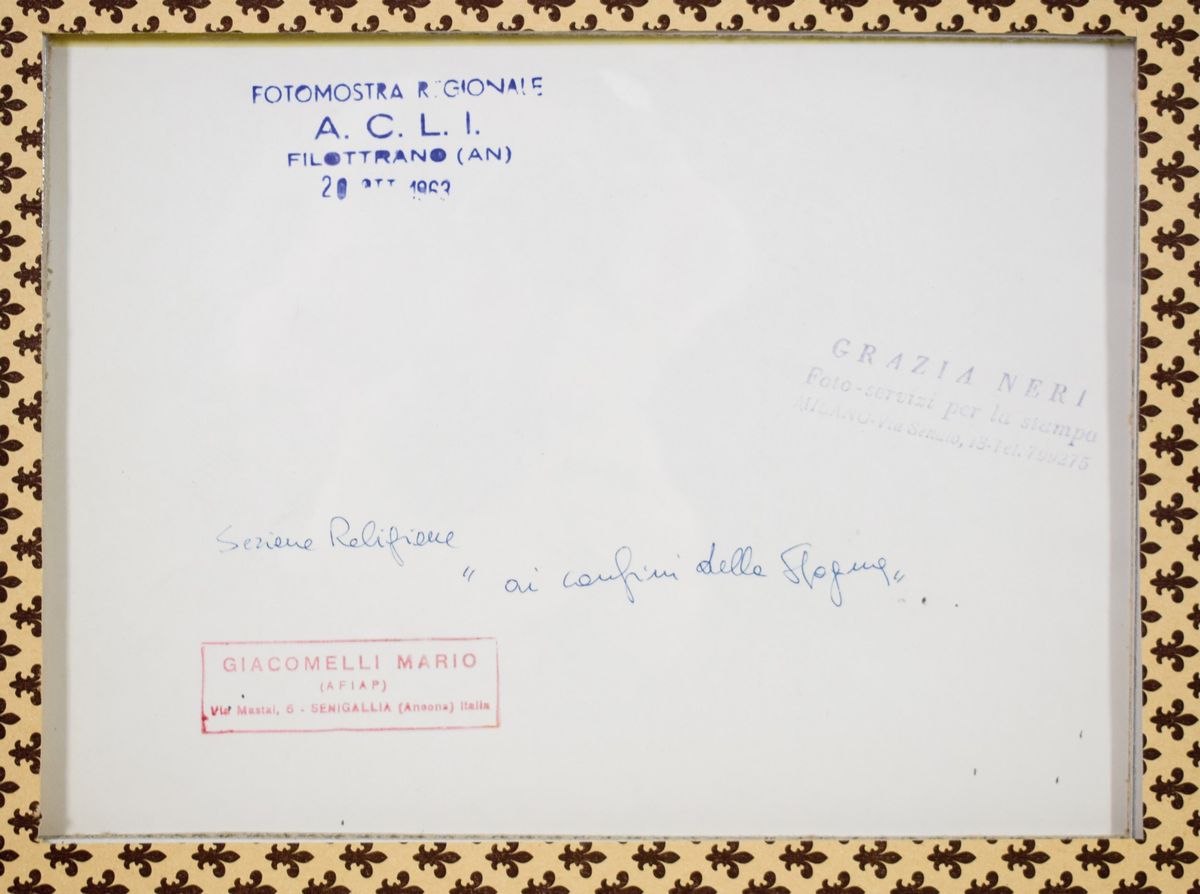 FOTOMOSTRA REGIONALE
A. C. L. I.
FILOTTRANO (AN)
20 OTT 1963
GRAZIA NERI
Foto-servizi per la stampa
MILANO-Via Senato, 18-Tel. 799275
Sezione Religione
" ai confini della Spagna "
GIACOMELLI MARIO
(AFIAP)
Via Mastai, 5 - SENIGALLIA (Ancona) Italia